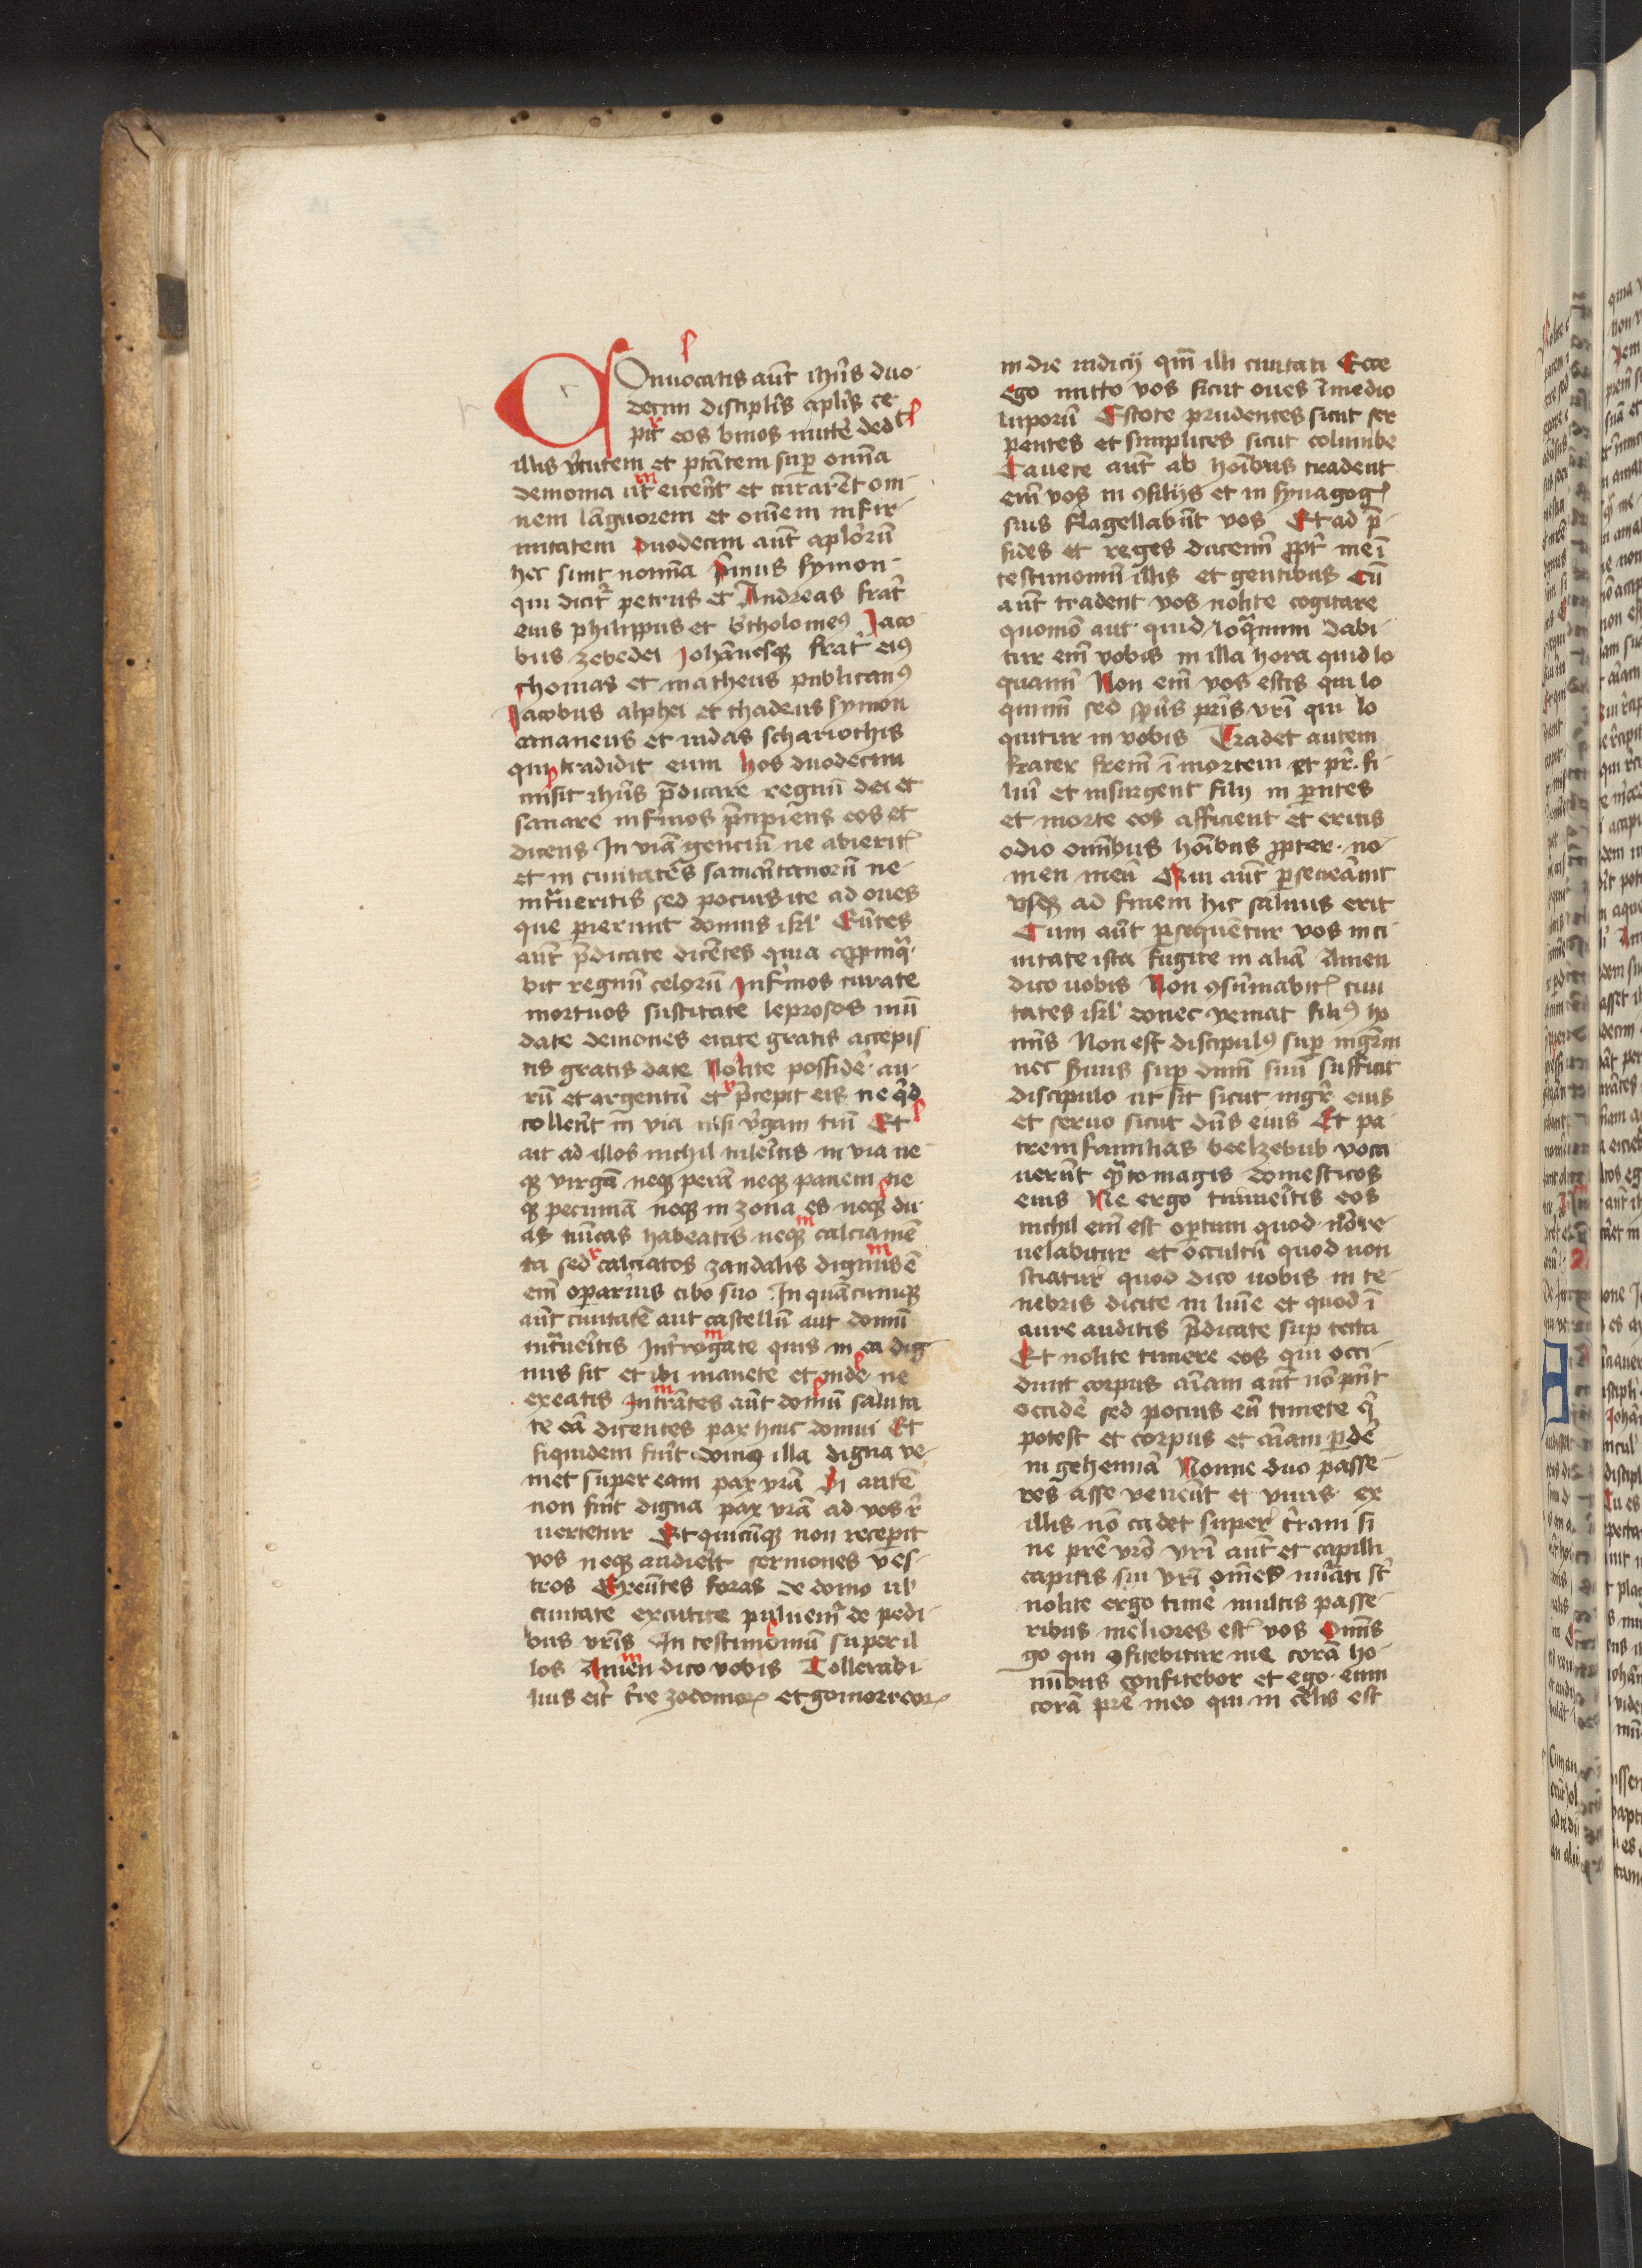 Onuocatis aut̄ ihūs duo
decim discipl̄is apl̄is ce
pit eos binos mitte᷑ ded
illis v᷑tutem et p̄tatem suꝑ om̄ia
demonia ut eice᷑nt et curare᷑t om
nem la᷑guorem et om̄em infir
mitatem Duodecim aut̄ aplor᷑ū
hec sunt nom̄ia p᷑mus symon
qui dicit᷑ petrus et Andreas frat᷑
eius philippus et b᷑tholomeꝰ Jaco
bus zebedei Joha᷑nesqꝫ frat᷑ eiꝰ
thomas et matheus publicanꝰ
Jacobus alphei et thadeus symon
cananeus et iudas schariothis
qui tradidit eum hos duodecim
misit ihūs p̄dicare regnū dei et
sanare infirmos p̄cipiens eos et
dicens In via᷑ genciū ne abierit᷑
et in ciuitates samaritanorū ne
int᷑ueritis sed pocius ite ad oues
que perierunt domus isrl̄ Eūtes
aut̄ p̄dicate dice᷑tes quia app̄inq᷑
bit regnū celorū Infirmos curate
mortuos suscitate leprosos mū
date demones eicite gratis accepis
tis gratis date Nolite possidē au
rū et argentū et p̄cepit eis ne q᷑d
tolle᷑nt in via nisi v᷑gam tm̄ Et
ait ad illos nichil tule᷑itis in via ne
qꝫ virgā neqꝫ perā neqꝫ panem ne
qꝫ pecuniā neqꝫ in zona es neqꝫ du
as tunicas habeatis neqꝫ calciamē
ta sed calciatos zandalis dignus ē
em̄ operarius cibo suo In quācunqꝫ
aut̄ ciuitatē aut castellū aut domū
int᷑ue᷑itis Int᷑rogate quis in ea dig
nus sit et ibi manete et inde ne
exeatis Int᷑ntes aut̄ domū saluta
te eā dicentes pax huic domui Et
siquidem fue᷑it domꝰ illa digna ve
niet super eam pax vr̄a Si autē
non fue᷑it digna pax vr̄a ad vos r᷑
uertetur Et quicūqꝫ non recepit
vos neqꝫ audie᷑it sermones ves
tros Exeūtes foras de domo ul᷑
ciuitate excutite puluem᷑ de pedi
bus vr̄is In testimoniū super il
los Amen dico vobis Tollerabi
lius eit᷑ t᷑re zodomoꝝ et gomorreoꝝ
in die iudicij qm̄ illi ciuitati Ecce
Ego mitto vos sicut oues ī medio
luporū Estote prudentes sicut ser
pentes et simplices sicut columbe
Cauete aut̄ ab hoībus tradent
em̄ vos in ꝯsilijs et in synagog᷑
suis flagellabūt vos Et ad p̄
sides et reges ducemī ꝓpt᷑ me ī
testimoniū illis et gentibus Cū
aut̄ tradent vos nolite cogitare
quomō aut quid loq᷑mini Dabi
tur em̄ vobis in illa hora quid lo
quamī Non em̄ vos estis qui lo
quimī sed spūs pr̄is vr̄i qui lo
quitur in vobis Tradet autem
frater fr̄em ī mortem et pr̄ fi
liū et insurgent filij in p̄ntes
et morte eos afficient et eritis
odio om̄ibus hoībus ꝓpter no
men meū Qui aut̄ perseuerauit
vsqꝫ ad finem hic saluus erit
Cum aut̄ persequentur vos in ci
uitate ista fugite in aliā Amen
dico uobis Non ꝯsūmabit᷑ ciui
tates isrl̄ donec veniat filiꝰ ho
mīs Non est discipulꝰ suꝑ mgr̄m
nec s᷑uus suꝑ dnm̄ suū sufficit
discipulo ut sit sicut mgr̄ eius
et seruo sicut dn̄s eius Et pa
trem familias beelzebub voca
uerūt q᷑nto magis domesticos
eius Ne ergo timue᷑itis eos
nichil em̄ est oꝑtum quod nō re
uelabitur et occultū quod non
sciatur quod dico uobis in te
nebris dicite in luīe et quod ī
aure auditis p̄dicate suꝑ tecta
Et nolite timere eos qui occi
dunt corpus aīam aut̄ nō pn̄t
occidē sed pocius eū timete q᷑
potest et corpus et aīam ꝑdē
in gehennā Nonne duo passe
res asse veneūt et vnus ex
illis nō cadet super t᷑ram si
ne pr̄e vr̄o vr̄i aut̄ et capilli
capitis sui vr̄i om̄es nu᷑ati st̄
nolite ergo timē multis passe
ribus meliores est᷑ vos Omīs
go qui ꝯfitebitur me corā ho
minibus confitebor et ego eum
corā pr̄e meo qui in celis est